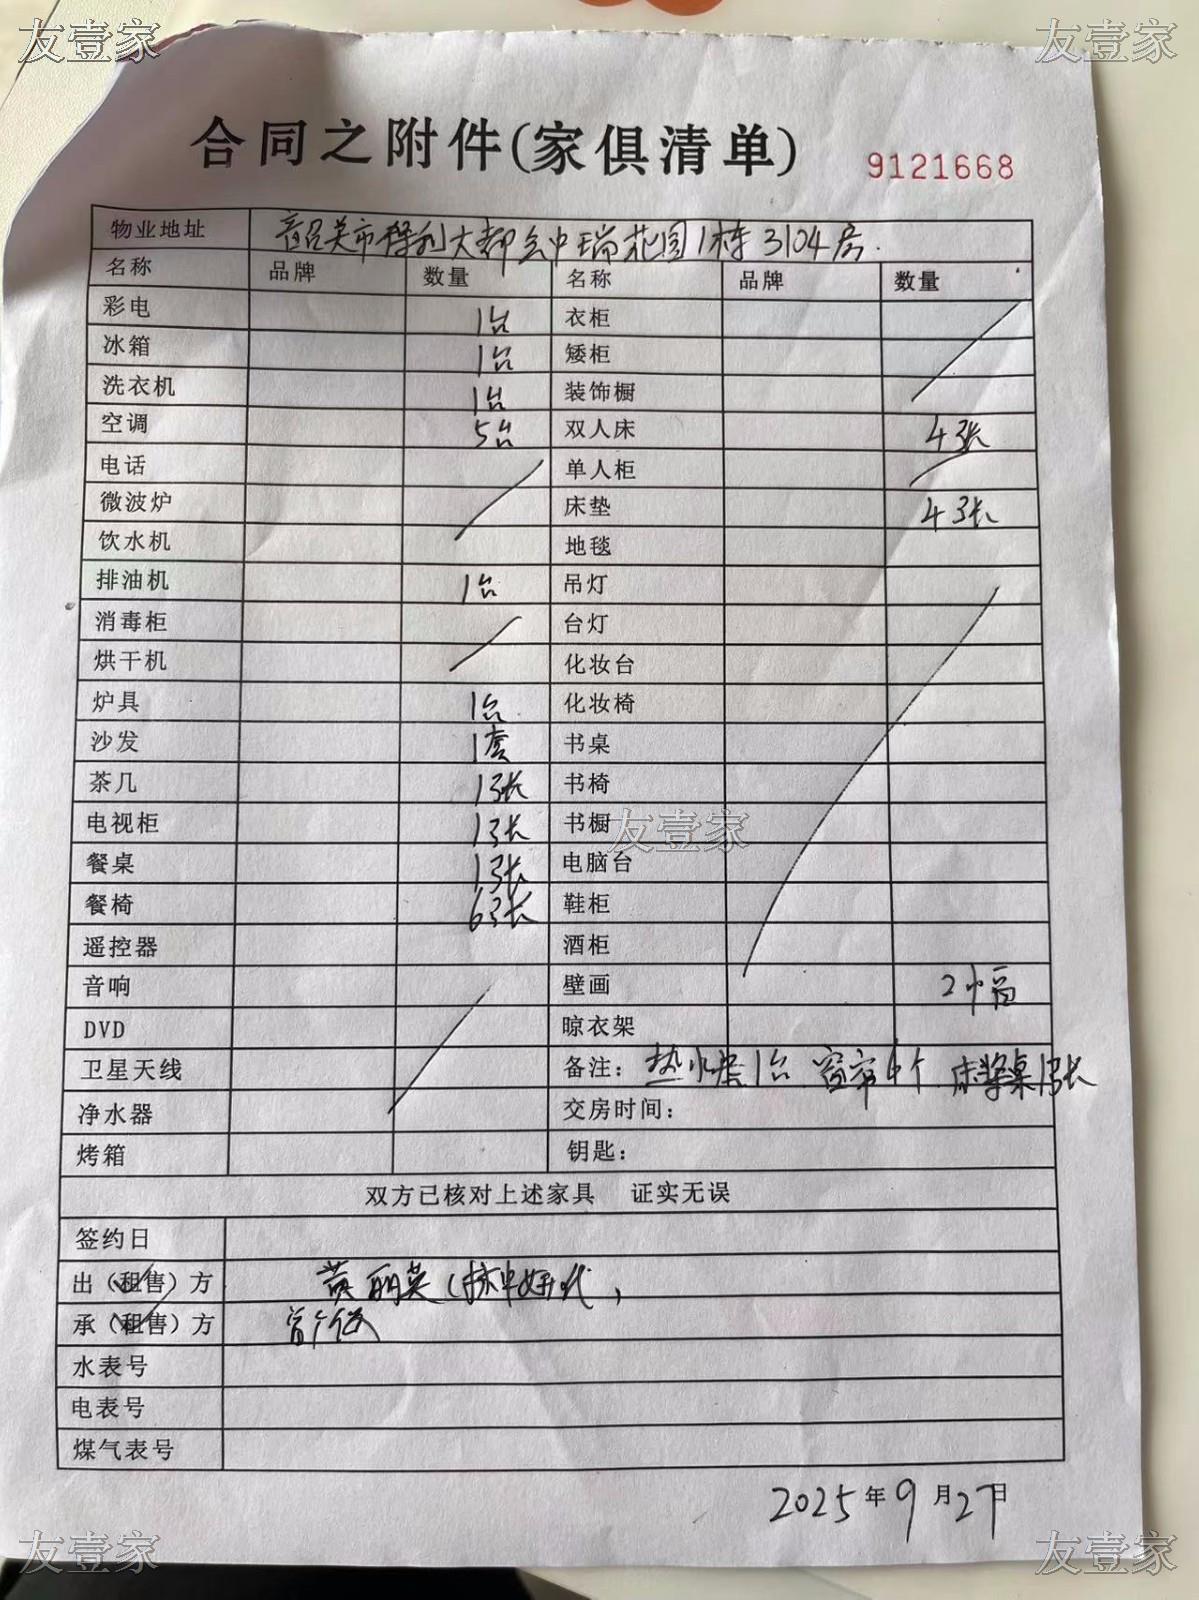 友壹家 友壹家
合同之附件(家俱清单) 9121668
物业地址 韶关市保利大都会中瑞花园1栋3104房.
名称 品牌 数量 名称 品牌 数量
彩电 1台 衣柜
冰箱 1台 矮柜
洗衣机 1台 装饰橱
空调 5台 双人床 4张
电话 单人柜
微波炉 床垫 4张
饮水机 地毯
排油机 1台 吊灯
消毒柜 台灯
烘干机 化妆台
炉具 1台 化妆椅
沙发 1套 书桌
茶几 1张 书椅
电视柜 1张 书橱 友壹家
餐桌 1张 电脑台
餐椅 6张 鞋柜
遥控器 酒柜
音响 壁画 2幅
DVD 晾衣架
卫星天线 备注：热水器1台 窗帘6个 床 桌1张
净水器 交房时间：
烤箱 钥匙：
双方已核对上述家具 证实无误
签约日
出（租售）方 黄丽英(代)
承（租售）方
水表号
电表号
煤气表号
2025年9月27日
友壹家 友壹家